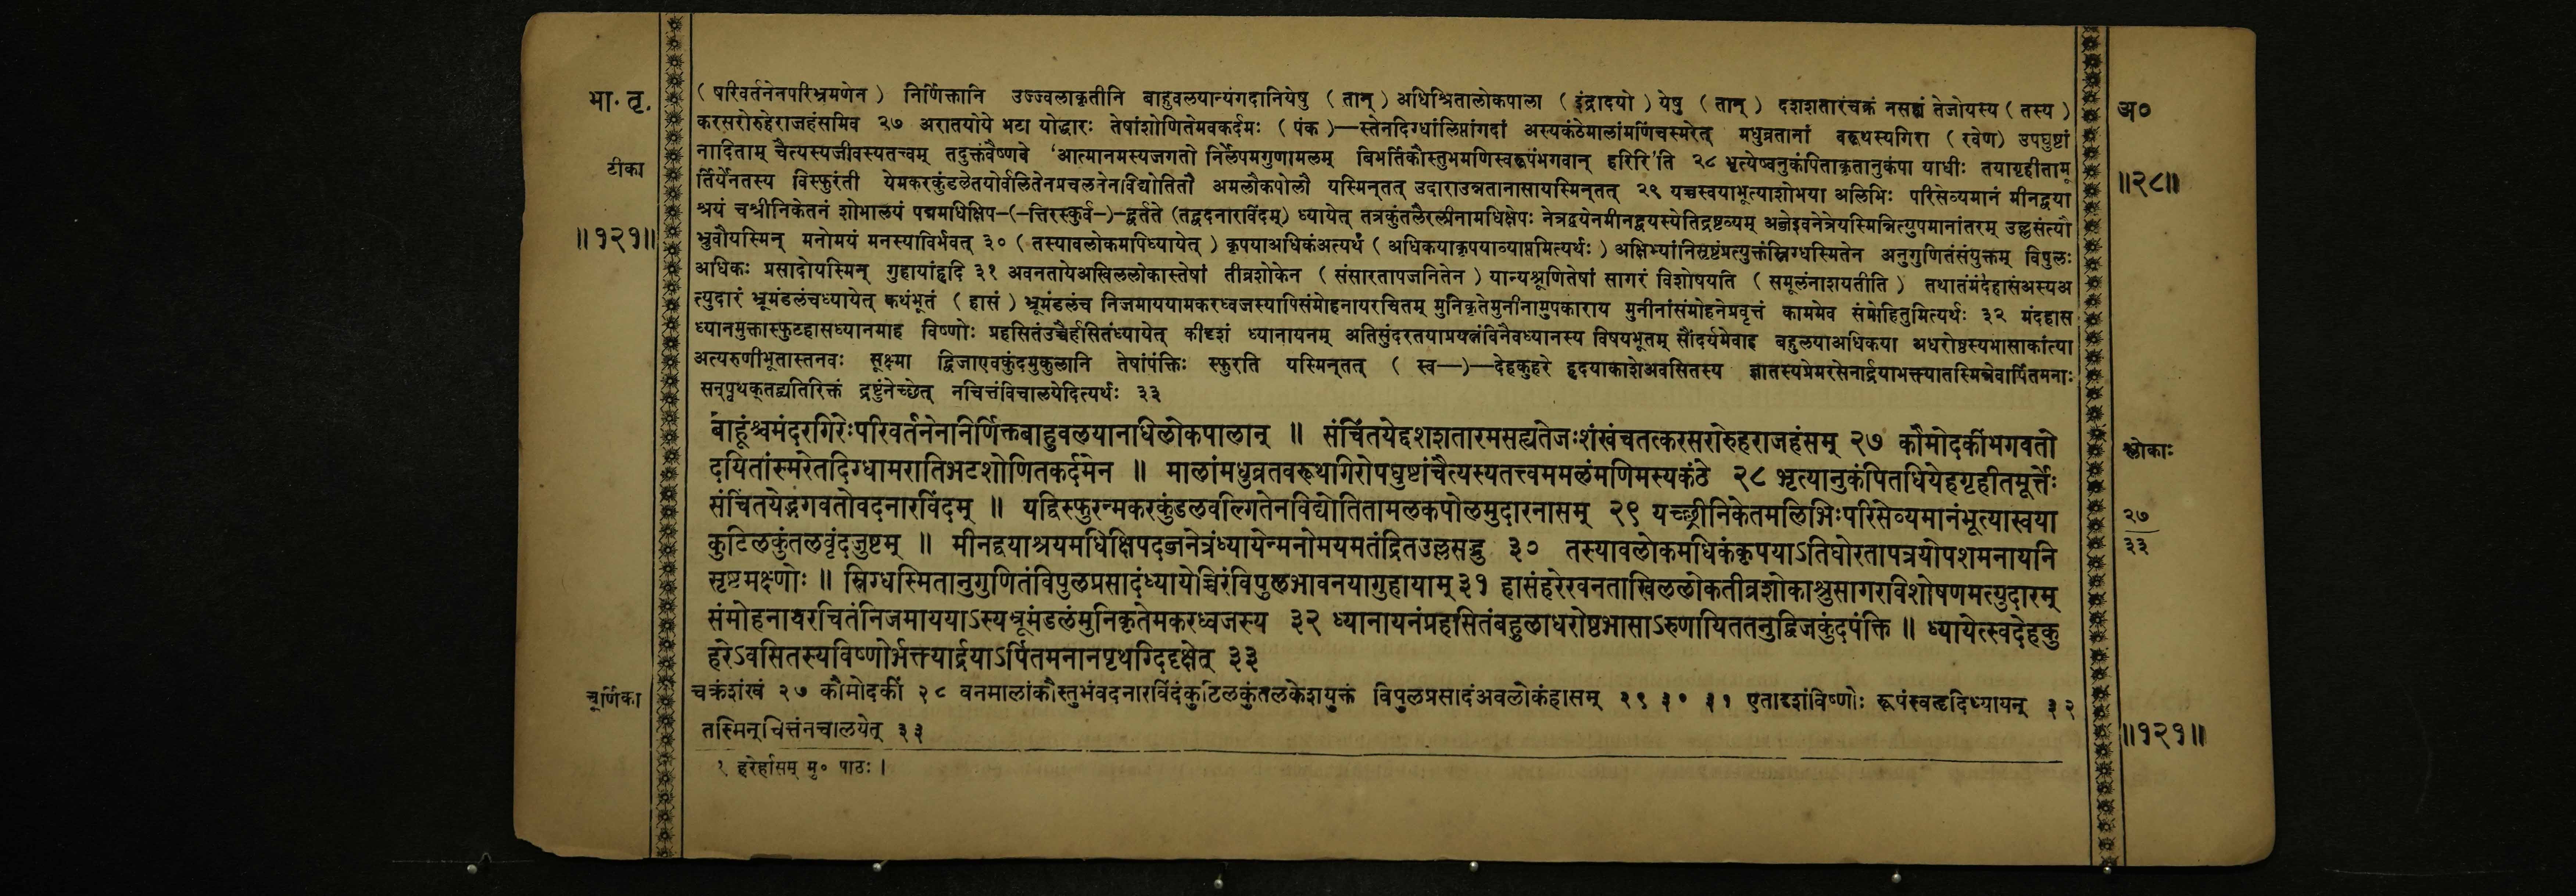 भा. तृ.
टीका
॥१२१॥
( परिवर्तनेनपरिभ्रमणेन ) निर्णिक्तानि उज्ज्वलाकृतीनि बाहुवलयान्यंगदानियेषु ( तान् ) अधिश्रितालोकपाला ( इंद्रादयो ) येषु ( तान् ) दशशतारंचक्रं नसह्यं तेजोयस्य ( तस्य )
करसरोरुहेराजहंसमिव २७ अरातयोये भटा योद्धारः तेषांशोणितमेवकर्दमः ( पंक )—स्तेनदिग्धांलिप्तांगदां अस्यकंठेमालांमणिंचस्मरेत् मधुव्रतानां वरूथस्यगिरा ( रवेण) उपघुष्टां
नादिताम् चैत्यस्यजीवस्यतत्त्वम् तदुक्तंवैष्णवे 'आत्मानमस्यजगतो निर्लेपमगुणामलम् बिभर्तिकौस्तुभमणिस्वरूपंभगवान् हरिरि'ति २८ भृत्येष्वनुकंपिताकृतानुकंपा याधीः तयागृहीतामू
र्तिर्येनतस्य विस्फुरंती येमकरकुंडलेतयोर्वलितेनप्रचलनेनविद्योतितौ अमलौकपोलौ यस्मिन्‌तत् उदाराउन्नतानासायस्मिन्‌तत् २९ यच्चस्वयाभूत्याशोभया अलिभिः परिसेव्यमानं मीनद्वया
श्रयं चश्रीनिकेतनं शोभालयं पद्ममधिक्षिप-(-त्तिरस्कुर्व-)-द्वर्तते (तद्वदनारविंदम्) ध्यायेत् तत्रकुंतलैरलीनामधिक्षेपः नेत्रद्वयेनमीनद्वयस्येतिद्रष्टव्यम् अब्जेइवनेत्रेयस्मिन्नित्युपमानांतरम् उल्लसंत्यौ
भ्रुवौयस्मिन् मनोमयं मनस्याविर्भवत् ३० ( तस्यावलोकमपिध्यायेत् ) कृपयाअधिकंअत्यर्थं ( अधिकयाकृपयाव्याप्तमित्यर्थः ) अक्षिभ्यांनिसृष्टंप्रत्युक्तंस्निग्धस्मितेन अनुगुणितंसंयुक्तम् विपुलः
अधिकः प्रसादोयस्मिन् गुहायांहृदि ३१ अवनतायेअखिललोकास्तेषां तीव्रशोकेन ( संसारतापजनितेन ) यान्यश्रूणितेषां सागरं विशोषयति ( समूलंनाशयतीति ) तथातंमंदहासंअस्यअ
त्युदारं भ्रूमंडलंचध्यायेत् कथंभूतं ( हासं ) भ्रूमंडलंच निजमाययामकरध्वजस्यापिसंमोहनायरचितम् मुनिकृतेमुनीनामुपकाराय मुनीनांसंमोहनेप्रवृत्तं काममेव संमोहितुमित्यर्थः ३२ मंदहास
ध्यानमुक्तास्फुटहासध्यानमाह विष्णोः प्रहसितंउच्चैर्हसितंध्यायेत् कीदृशं ध्यानायनम् अतिसुंदरतयाप्रयत्नंविनैवध्यानस्य विषयभूतम् सौंदर्यमेवाह बहुलयाअधिकया अधरोष्ठस्यभासाकांत्या
अत्यरुणीभूतास्तनवः सूक्ष्मा द्विजाएवकुंदमुकुलानि तेषांपंक्तिः स्फुरति यस्मिन्‌तत् ( स्व—)—देहकुहरे हृदयाकाशेअवसितस्य ज्ञातस्यप्रेमरसेनार्द्रयाभक्त्यातस्मिन्नेवार्पितमनाः
सन्‌पृथक्‌तद्व्यतिरिक्तं द्रष्टुंनेच्छेत् नचित्तंविचालयेदित्यर्थः ३३
बाहूंश्चमंदरगिरेःपरिवर्तनेनानिर्णिक्तबाहुवलयानाधिलोकपालान् ॥ संचिंतयेद्दशशतारमसह्यतेजःशंखंचतत्करसरोरुहराजहंसम् २७ कौमोदकींभगवतो
दयितांस्मरेतदिग्धामरातिभटशोणितकर्दमेन ॥ मालांमधुव्रतवरूथगिरोपघुष्टांचैत्यस्यतत्त्वममलंमणिमस्यकंठे २८ भृत्यानुकंपितधियेहगृहीतमूर्त्तेः
संचिंतयेद्भगवतोवदनारविंदम् ॥ यद्विस्फुरन्मकरकुंडलवल्गितेनविद्योतितामलकपोलमुदारनासम् २९ यच्छ्रीनिकेतमलिभिःपरिसेव्यमानंभूत्यास्वया
कुटिलकुंतलवृंदजुष्टम् ॥ मीनद्वयाश्रयमधिक्षिपदब्जनेत्रंध्यायेन्मनोमयमतंद्रितउल्लसद्भ्रु ३० तस्यावलोकमधिकंकृपयाऽतिघोरतापत्रयोपशमनायनि
सृष्टमक्ष्णोः ॥ स्निग्धस्मितानुगुणितंविपुलप्रसादंध्यायेच्चिरंविपुलभावनयागुहायाम् ३१ हासंहरेरवनताखिललोकतीव्रशोकाश्रुसागरविशोषणमत्युदारम्
संमोहनायरचितंनिजमाययाऽस्यभ्रूमंडलंमुनिकृतेमकरध्वजस्य ३२ ध्यानायनंप्रहसितंबहुलाधरोष्ठभासाऽरुणायिततनुद्विजकुंदपंक्ति ॥ ध्यायेत्स्वदेहकु
हरेऽवसितस्यविष्णोर्भक्तयार्द्रयाऽर्पितमनानपृथग्दिदृक्षेत् ३३
चूर्णिका
चक्रंशंखं २७ कौमोदकीं २८ वनमालांकौस्तुभंवदनारविंदंकुटिलकुंतलकेशयुक्तं विपुलप्रसादंअवलोकंहासम् २९ ३० ३१ एतादृशंविष्णोः रूपंस्वहृदिध्यायन् ३२
तस्मिन्‌चित्तंनचालयेत् ३३
१ हरेर्हासम् मु० पाठः ।
अ०
॥२८॥
श्लोकाः
२७
३३
॥१२१॥